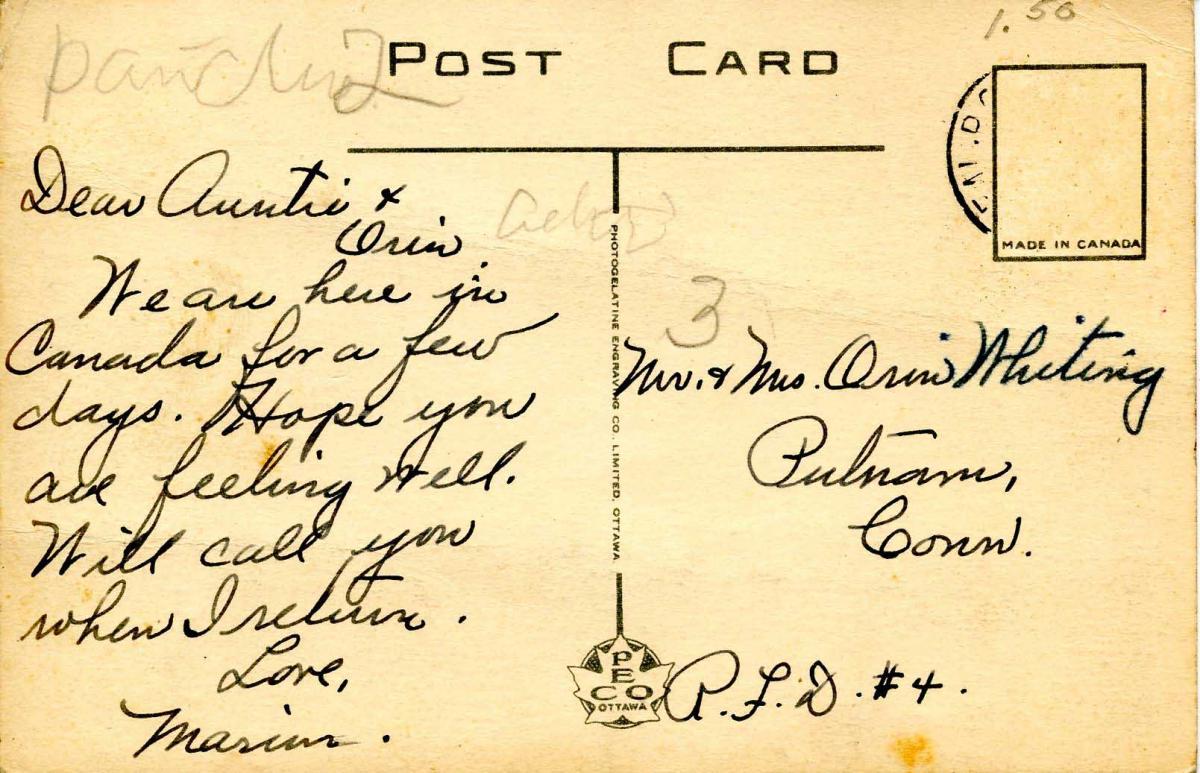 1.50
POST CARD
Dear Auntie &
Orin.
We are here in
Canada for a few
days. Hope you
are feeling well.
Will call you
when I return.
Love,
Marion.
PHOTOGELATINE ENGRAVING CO., LIMITED, OTTAWA
MADE IN CANADA
3
Mr. & Mrs. Orin Whiting
Putnam,
Conn.
R.F.D. #4.
PECO
OTTAWA